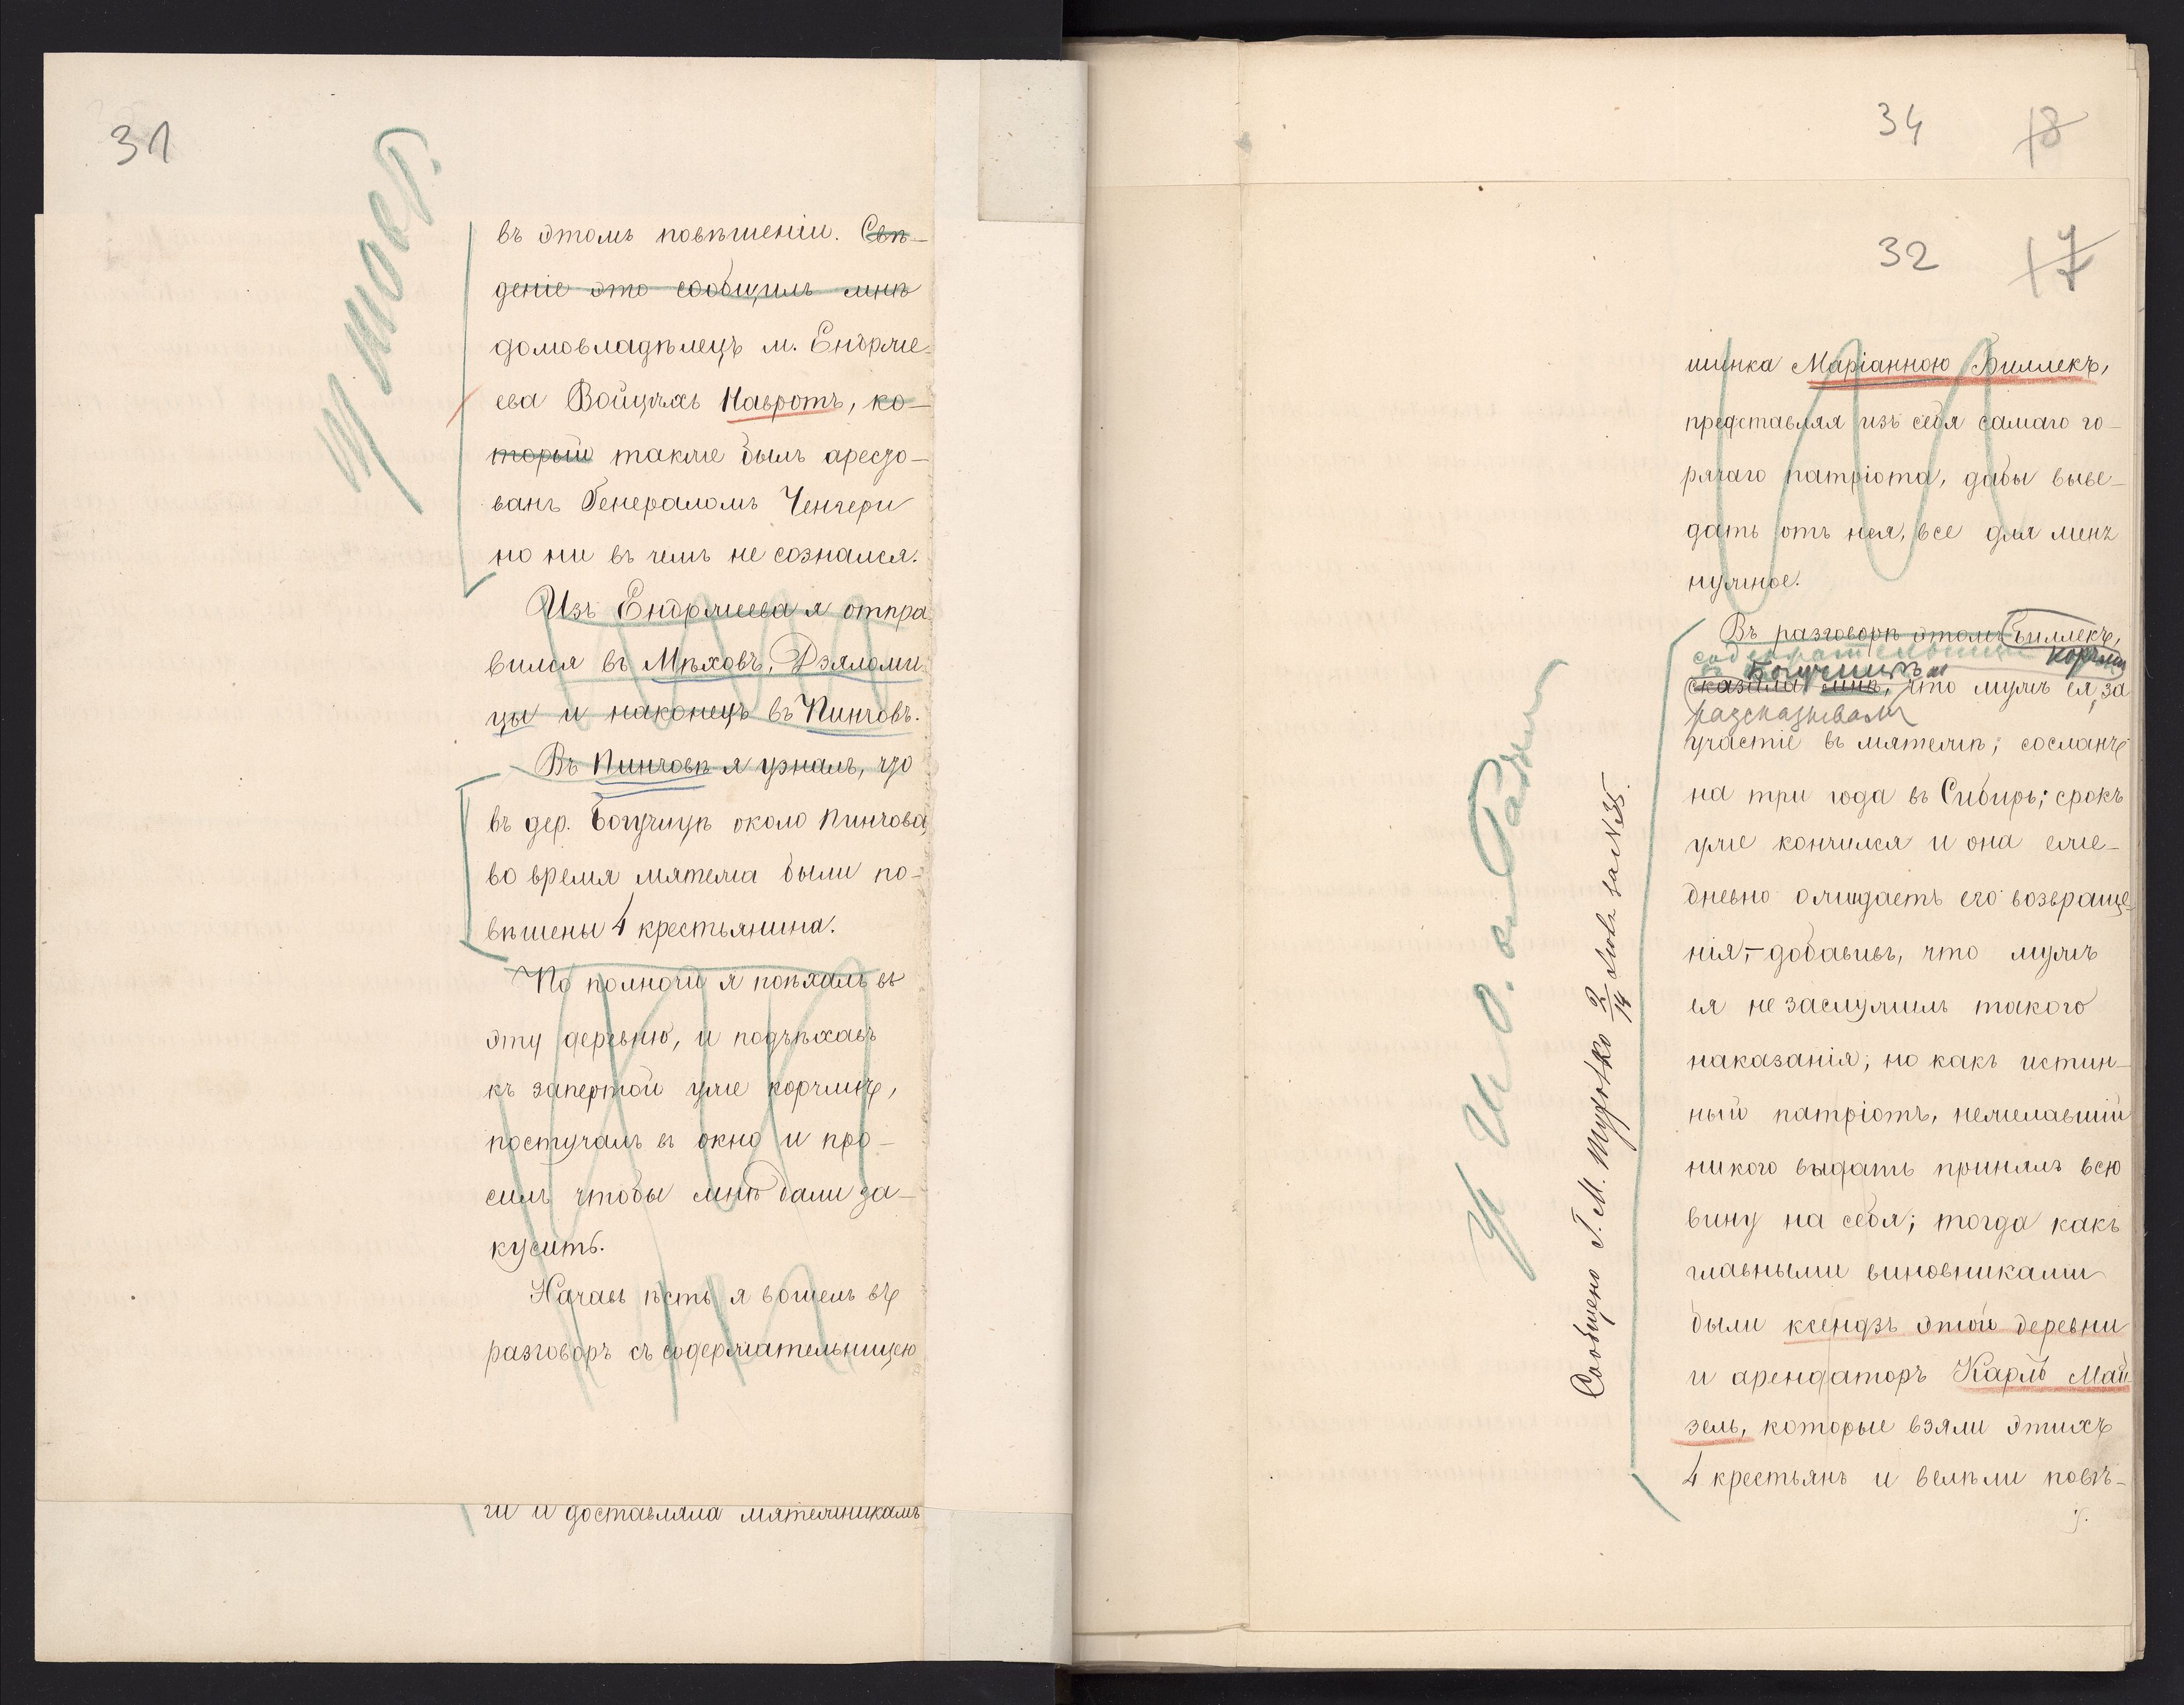 31
въ этомъ повѣшеніи. Свѣ-
деніе это сообщилъ мнѣ
домовладѣлецъ м. Енджие-
ева Войцѣхъ Навротъ, ко-
торый также былъ аресто-
ванъ Генераломъ Ченгери
но ни въ чемъ не сознался.
Изъ Енджиеева я отпра
вился въ Мѣховъ, Дзялоши
цы и наконецъ въ Пинчовъ.
Въ Пинчовѣ я узналъ, что
въ дер. Богучицѣ около Пинчова
во время мятежа были по-
вѣшены 4 крестьянина.
По полночи я поѣхалъ въ
эту деревню, и подъѣхавъ
къ запертой уже корчмѣ,
постучалъ въ окно и про-
силъ чтобы мнѣ дали за-
кусить.
Начавъ ѣсть я вошелъ въ
разговоръ съ содержательницею
ги и доставляла мятежникамъ
34 18
32 17
шинка Маріанною Биллекъ,
представляя изъ себя самаго го-
рячаго патріота, дабы выве-
дать отъ нея, все для меня
нужное.
Въ разговорѣ этомъ Биллекъ,
содержательница корчмы
въ Богучицѣ
сказала мнѣ, что мужъ ея, за
разсказывала
участіе въ мятежѣ; сосланъ
на три года въ Сибирь; срокъ
уже кончился и она еже-
дневно ожидаетъ его возвраще-
нія,- добавивъ, что мужъ
ея не заслужилъ такого
наказанія; но какъ истин-
ный патріотъ, нежелавшій
никого выдать принялъ всю
вину на себя; тогда какъ
главными виновниками
были ксендзъ этой деревни
и арендаторъ Карлъ Май
зель, которые взяли этихъ
4 крестьянъ и велѣли повѣ-
Сообщено Г. М. 2/14 за № 35.